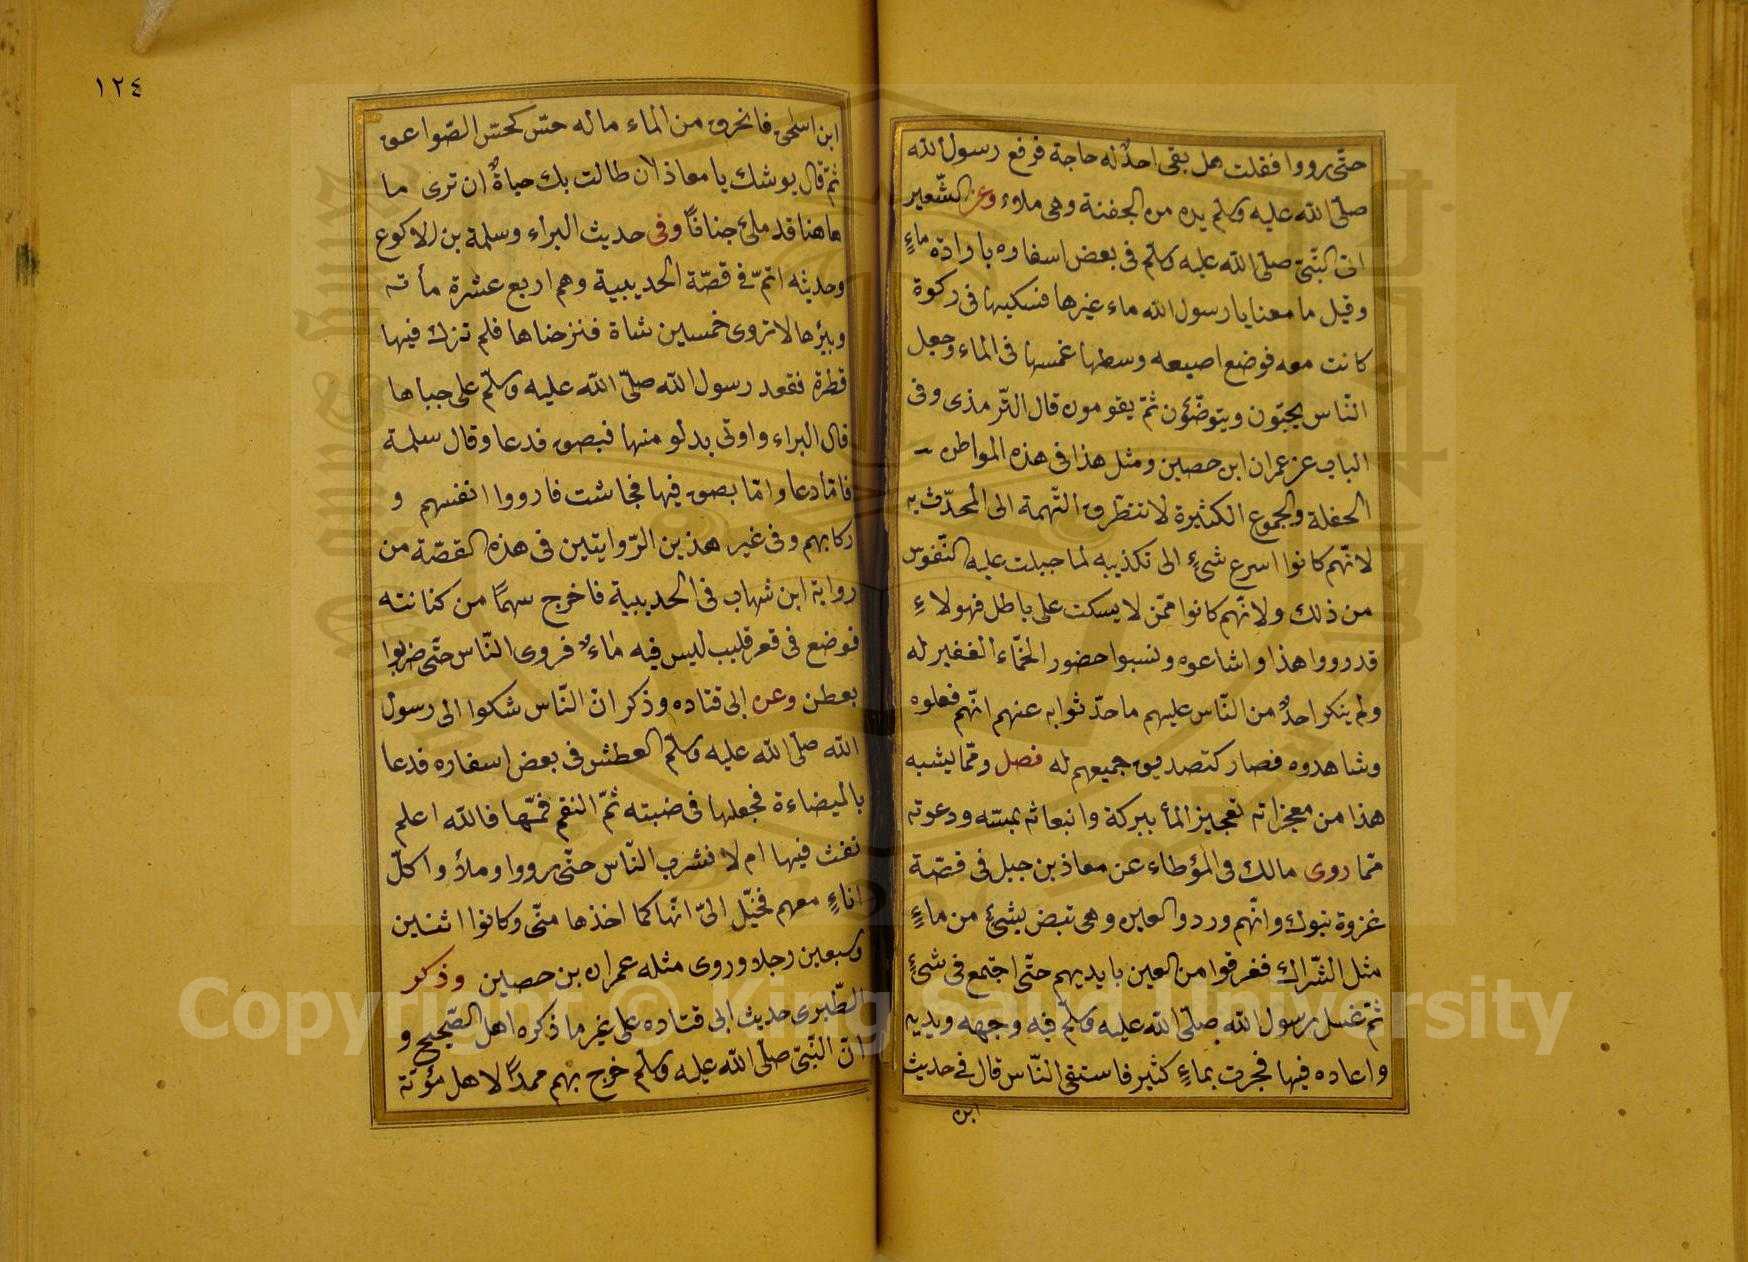 حتّى رووا فقلت هل بقى احدٌ له حاجة فرفع رسول الله
صلّى الله عليه وسلّم يده من الجفنة وهى ملاء وعن الشّعبر
انّ النّبىّ صلّى الله عليه وسلّم فى بعض اسفاره باداوة ماءٍ
وقيل ما معنا يا رسول الله ماء غيرها فسكبها فى ركوة
كانت معه فوضع اصبعه وسطها غمسها فى الماء وجعل
النّاس يجيّون ويتوضّؤن ثمّ يقومون قال التّرمذى وفى
الباب عن عمران ابن حصين ومثل هذا فى هذه المواطن
الحفلة والجموع الكثيرة لا تتطرق التّهمة الى المحدّث به
لانّهم كانوا اسرع شىءٍ الى تكذيبه لما جبلت عليه النّفوس
من ذلك ولانّهم كانوا ممّن لا يسكت على باطل فهولاءِ
قد رووا هذا واشاعوه ونسبوا حضور الجمّاء الغفير له
ولم ينكر احدٌ من النّاس عليهم ما حدّثوا به عنهم انّهم فعلوه
وشاهدوه فصار كتصديق جميعهم له فصل وممّا يشبه
هذا من معجزاته تفجيز الماء ببركة وانبعاثه بمسّه ودعوته
ممّا روى مالك فى المؤطاء عن معاذ بن جبل فى قصّة
غزوة تبوك وانّهم وردوا العين وهى تبض بشىءٍ من ماءٍ
مثل الشّراك فغرفوا من العين بايديهم حتّى اجتمع فى شىءٍ
ثمّ غسل رسول الله صلّى الله عليه وسلّم فيه وجهه ويديه
واعاده فيها فجرت بماءٍ كثير فاستقى النّاس قال فى حديث
ابن
١٢٤
ابن اسحٰق فانخرق من الماء ماله حسّ كحسّ الصّواعق
ثمّ قال يوشك يا معاذ لان طالت بك حياةٌ ان ترى ما
هاهنا قد ملئ جنانًا وفى حديث البراء وسلمة بن الاكوع
وحديثه اتمّ فى قصّة الحديبية وهم اربع عشرة مأته
وبيرها لا تروى خمسين شاة فنزحناها فلم تزك فيها
قطرة فقعد رسول الله صلّى الله عليه وسلّم على جباها
قال البراء واوتى بدلو منها فبصق فدعا وقال سلمة
فامّا دعا وامّا بصق فيها فجاشت فارووا انفسهم و
ركابهم وفى غير هذين الرّوايتين فى هذه القصّة من
رواية ابن شهاب فى الحديبية فاخرج سهمًا من كنانته
فوضع فى قعر قليب ليس فيه ماءٌ فروى النّاس حتّى ضربوا
بعطن وعن ابى قتاده وذكر انّ النّاس شكوا الى رسول
الله صلّى الله عليه وسلّم العطش فى بعض اسفاره فدعا
بالميضاءة فجعلها فى ضبنه ثمّ التقم فمّها فالله اعلم
نفث فيها ام لا فشرب النّاس حتّى رووا وملأوا كلّ
اناءٍ معهم فخيّل الىّ انّها كما اخذها منّى وكانوا اثنين
وسبعين رجلا وروى مثله عمران بن حصين وذكر
الطّبرى حديث ابى قتاده على غير ما ذكره اهل الصّحيح و
انّ النّبىّ صلّى الله عليه وسلّم خرج بهم ممدًّا لاهل مؤتة
Copyright © King Saud University